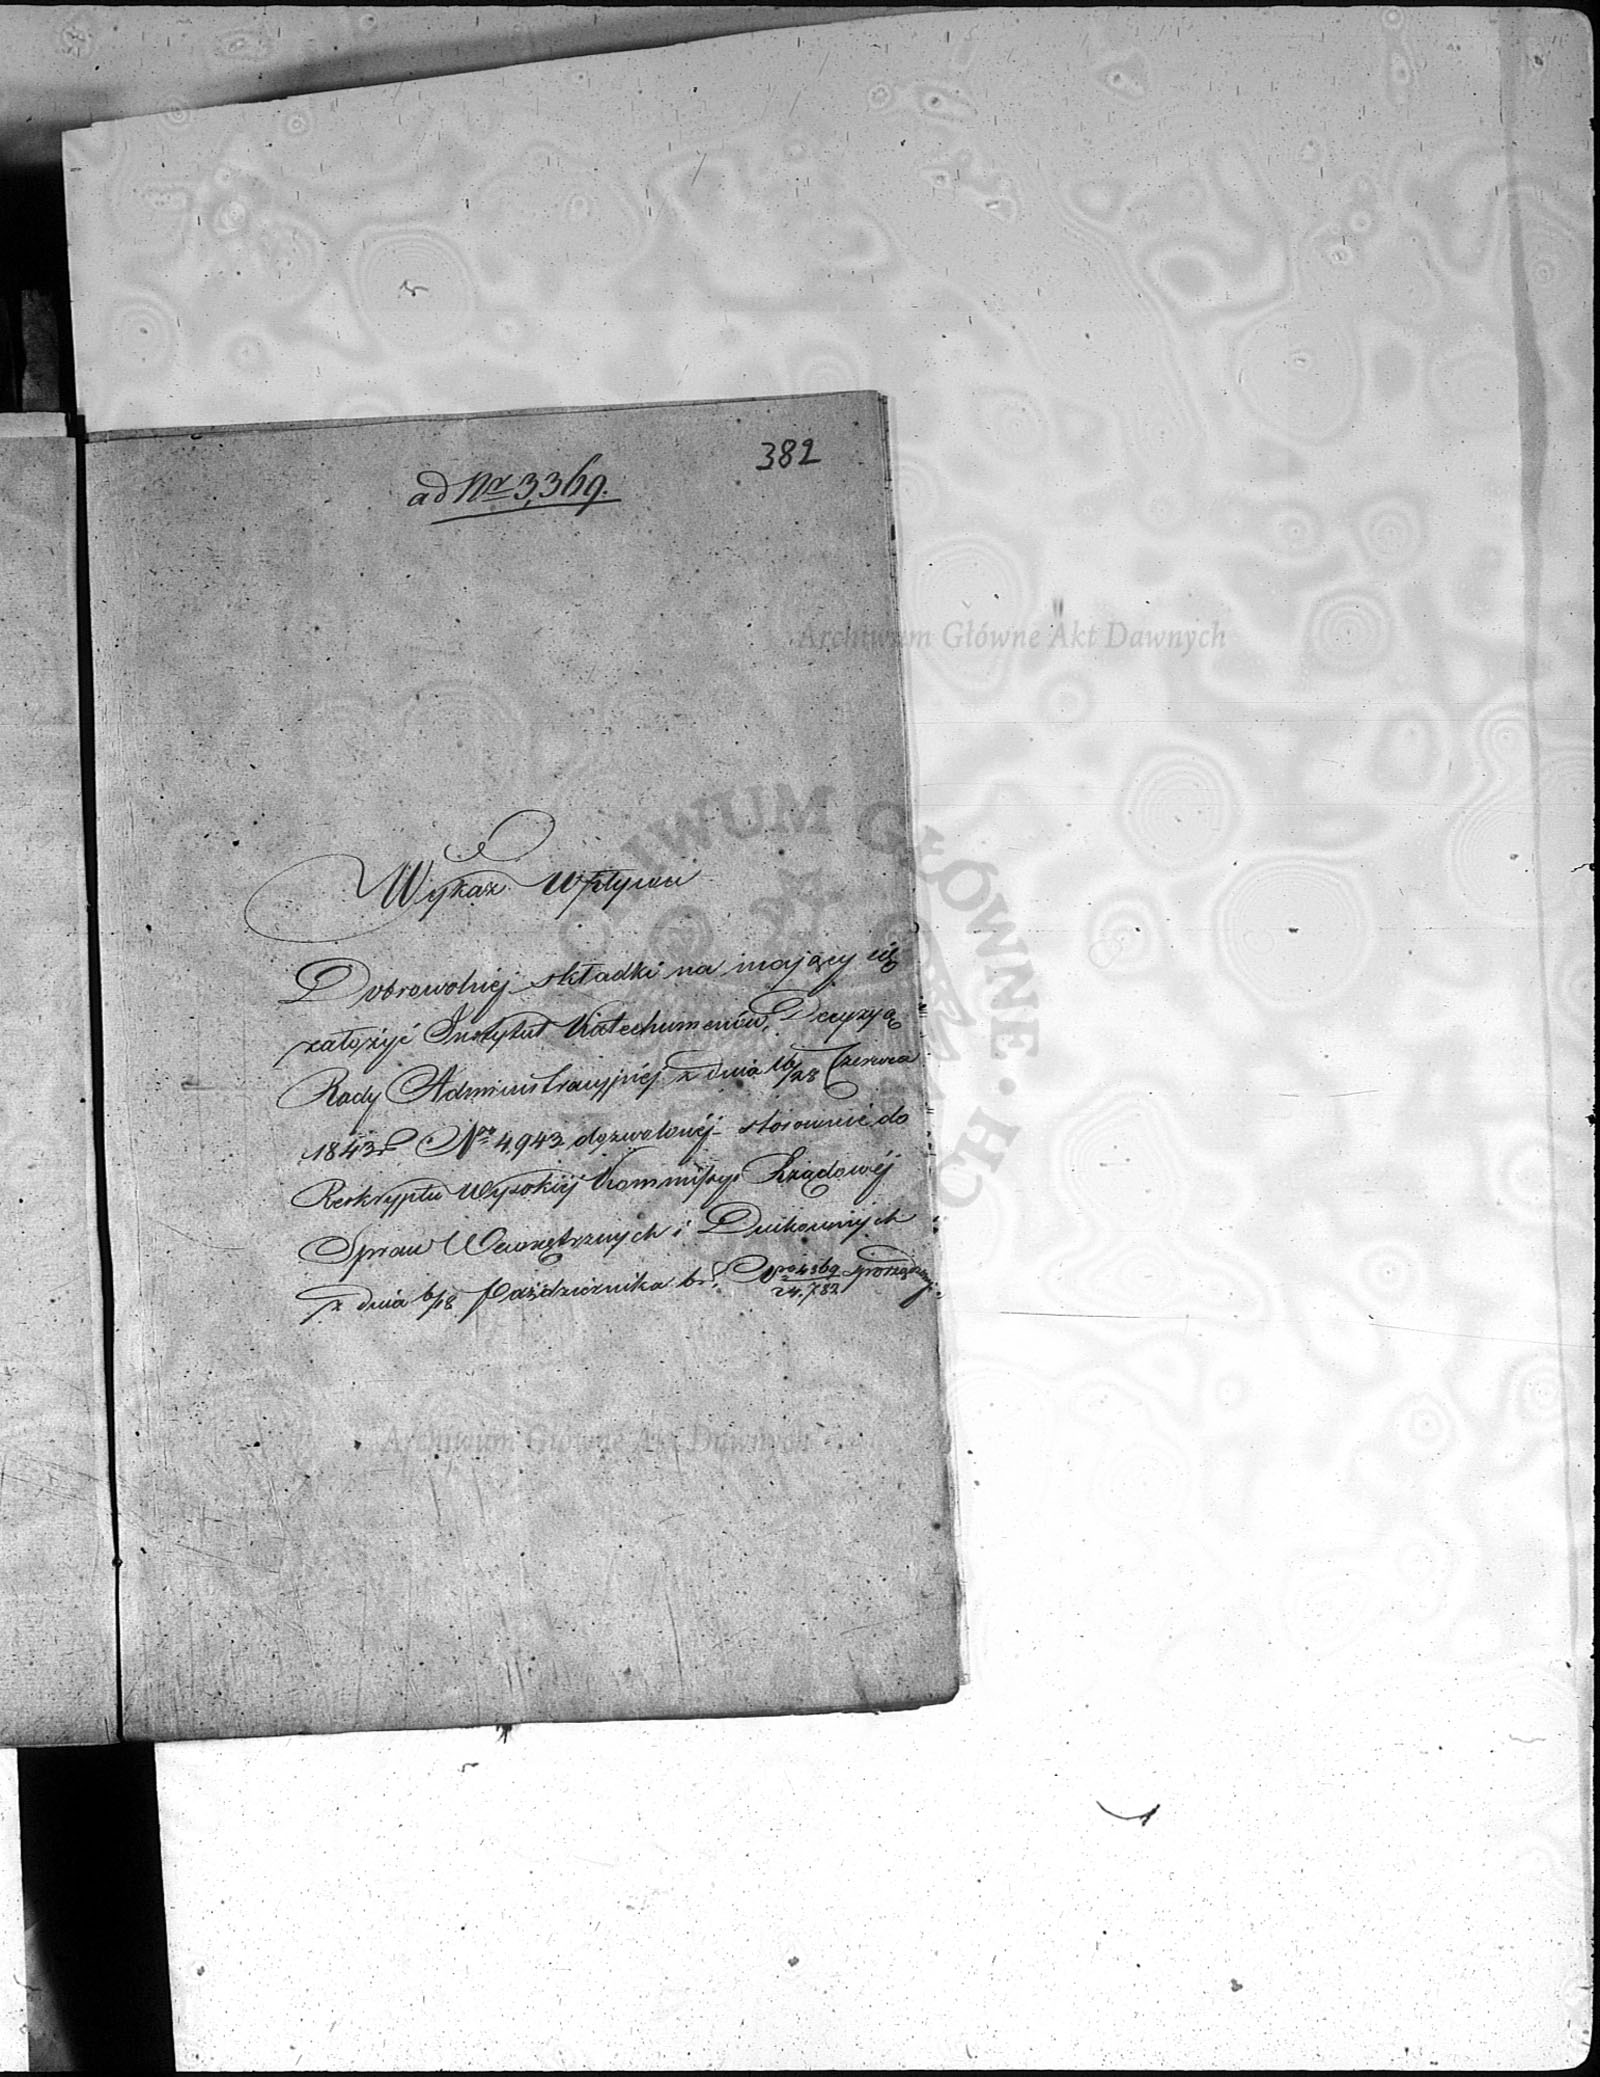 382
ad Nr 3,369.
Wykaz Wpływu
Dobrowolnéj składki na mający się
założyć Instytut Katechumenów, Decyzyą
Rady Administracyjnéj z dnia 16/28 Czerwca
1843r. Nro 4,943 dozwolonéj - stosownie do
Reskryptu Wysokiéj Kommissyi Rządowéj
Spraw Wewnętrznych i Duchownych
z dnia 6/18 Października br. Nro 4369/24,782 sporządzony.
Archiwum Główne Akt Dawnych
Archiwum Główne Akt Dawnych